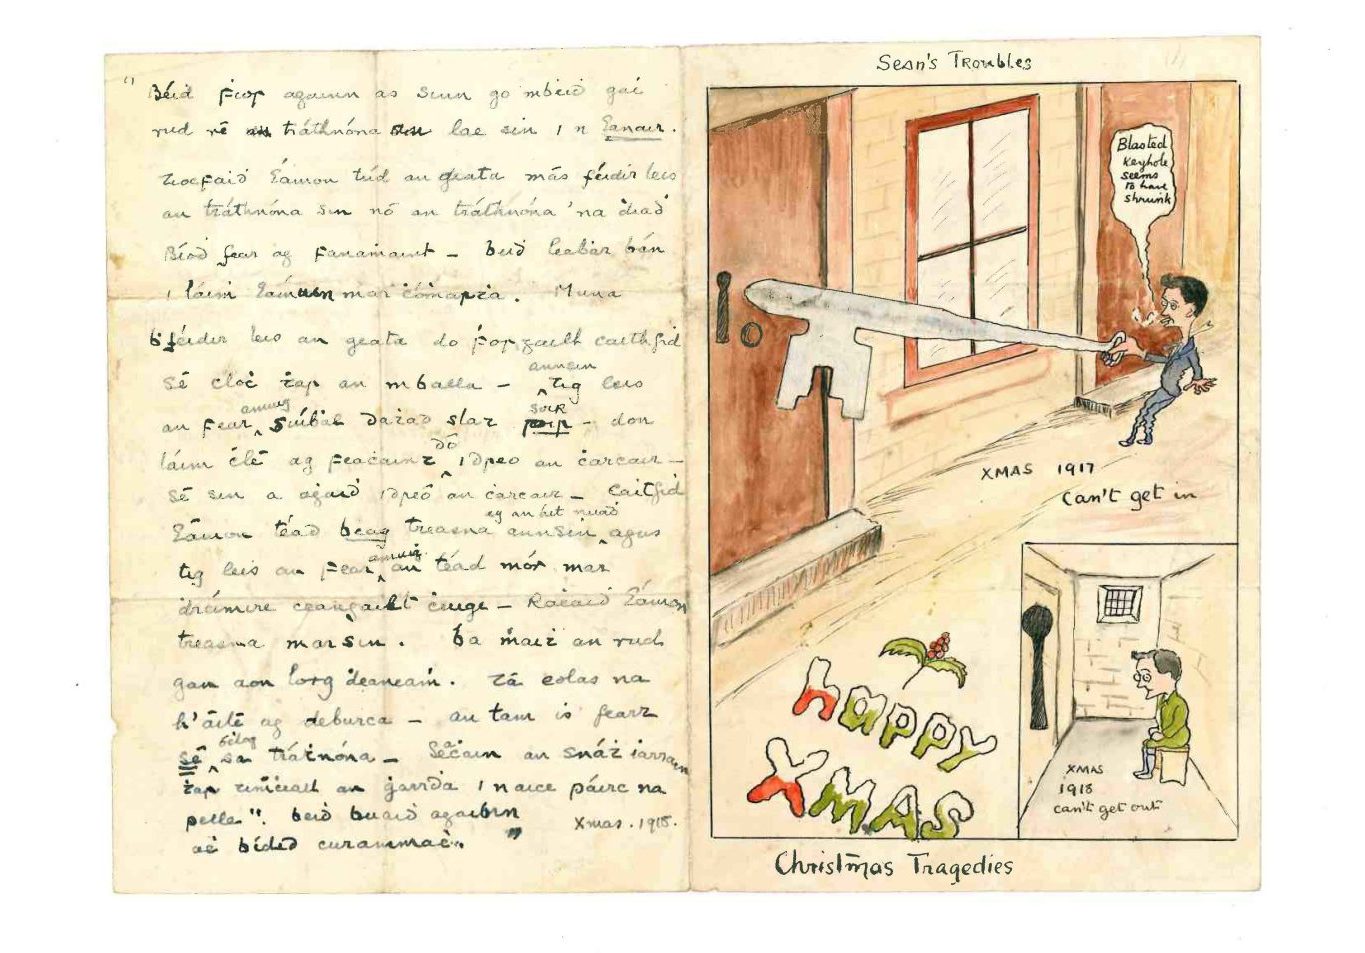 "Béiḋ fior againn as sinn go mbeiḋ gaċ
rud ré tráthnóna lae sin i n Eanair.
Éamon túd an geata más féidir leis
an tráthnóna sin nó an tráthnóna 'na ḋiaḋ
Bíoḋ fear ag fanaṁaint – beiḋ leaḃar bán
i láiṁ Éamuon mar ċóṁarṫa. Muna
b'féidir leis an geata do ḟorgailt caithfid
sé cloċ ṫar an mballa – annsin tig leis
an fear amuig siúbal daṫad slat soir – don
láiṁ ċlé ag feaċaint dó i dtreo an ċarcair –
sé sin a aġaiḋ i dtreó an ċarcair – Caitfid
Éamon téad beag treasna annsin agus
tig leis an fear amuig an téad mór mar
dréimire ceangailt ċuige – Raċaid Éamon
treasna mar sin. Ba ṁaiṫ an rud
gan aon lorg ḋéaneaṁ. Tá eolas na
h'áite ag deburca – an t-am is fearr
sé sa tráṫnóna – Seaċain an snáṫ iarrain
ṫar timċeall an garrḋa i naice páirc na
peile". beiḋ buaiḋ agaiḃ
aċ bided curammaċ."
Xmas. 1918.
Sean's Troubles
Blasted
keyhole
seems
to have
shrunk
XMAS 1917
Can't get in
XMAS
1918
can't get out
happy
XMAS
Christmas Tragedies